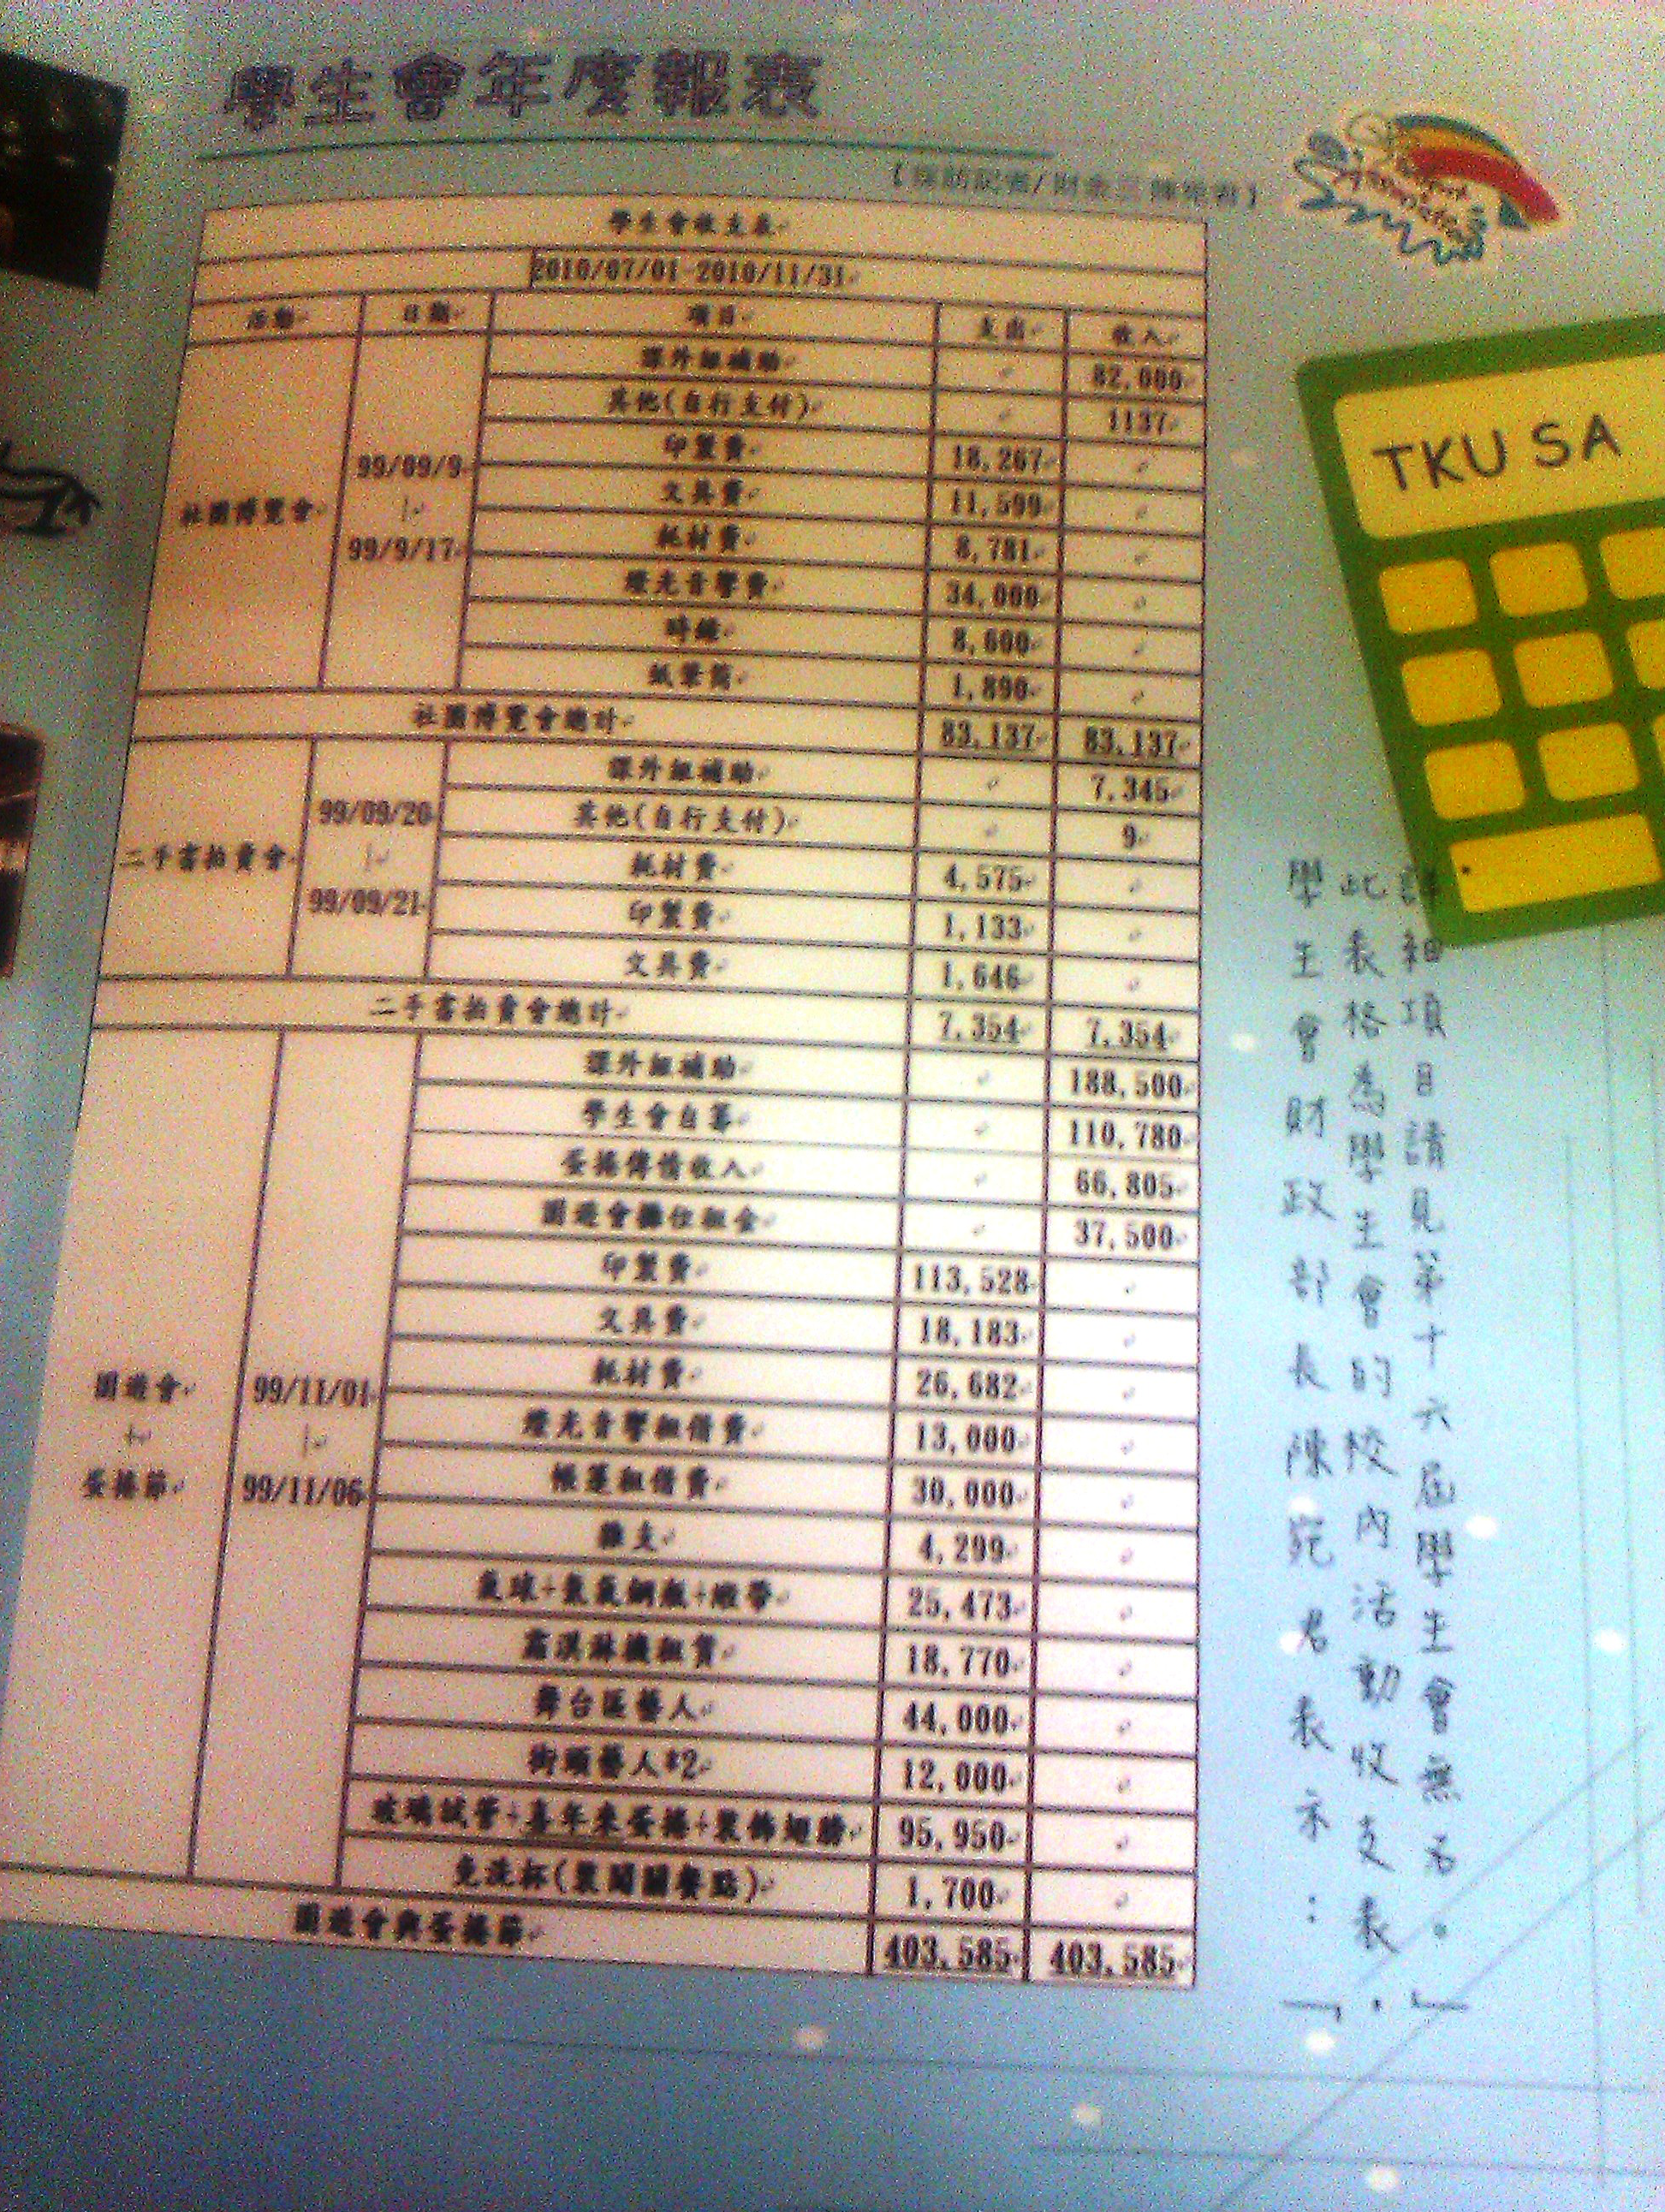 學生會年度報表
學生會收支表
2010/07/01-2010/11/31
活動 日期 項目 支出 收入
社團博覽會
99/09/9
|
99/9/17
課外組補助 82,000
其他(自行支付) 1137
印製費 18,267
文具費 11,599
耗材費 8,781
燈光音響費 34,000
時鐘 8,600
紙筆筒 1,890
社團博覽會總計 83,137 83,137
二手書拍賣會
99/09/20
|
99/09/21
課外組補助 7,345
其他(自行支付) 9
耗材費 4,575
印製費 1,133
文具費 1,646
二手書拍賣會總計 7,354 7,354
園遊會
+
蛋捲節
99/11/01
|
99/11/06
課外組補助 188,500
學生會自籌 110,780
蛋捲傳情收入 66,805
園遊會攤位租金 37,500
印製費 113,528
文具費 18,183
耗材費 26,682
燈光音響租借費 13,000
帳蓬租借費 30,000
雜支 4,299
氣球+氦氣鋼瓶+緞帶 25,473
霜淇淋機租賃 18,770
舞台區藝人 44,000
街頭藝人*2 12,000
玻璃試管+嘉年來蛋捲+裝飾翅膀 95,950
免洗杯(裝闖關餐點) 1,700
園遊會與蛋捲節 403,585 403,585
TKU SA
學生會財政部長陳宛君表示：「
此表格為學生會的校內活動收支表。
詳細項目請見第十六屆學生會無名。」